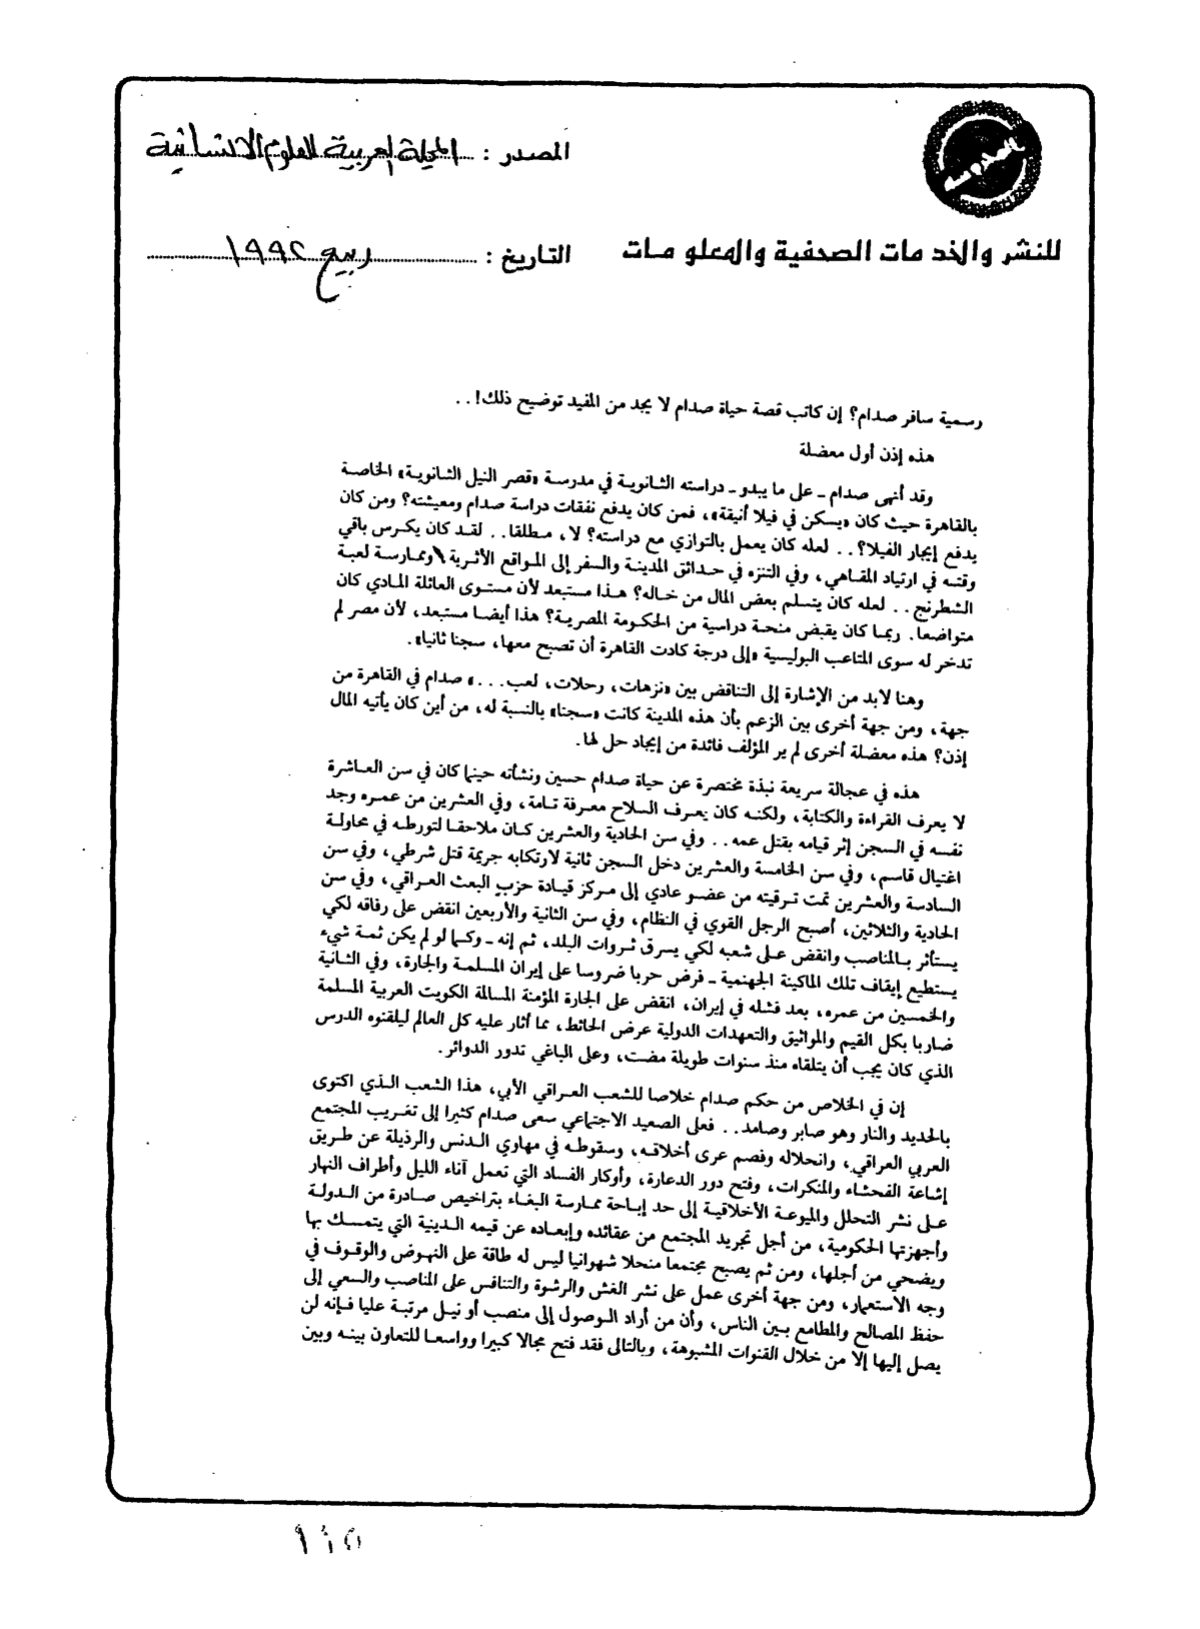 المصدر : المجلة العربية للعلوم الانسانية
للنشر والخدمات الصحفية والمعلومات
التاريخ : ربيع ١٩٩٢
رسمية سافر صدام؟ إن كاتب قصة حياة صدام لا يجد من المفيد توضيح ذلك! . .
هذه إذن أول معضلة
وقد أنهى صدام ـ على ما يبدو ـ دراسته الثانوية في مدرسة «قصر النيل الثانوية» الخاصة
بالقاهرة حيث كان «يسكن في فيلا أنيقة»، فمن كان يدفع نفقات دراسة صدام ومعيشته؟ ومن كان
يدفع إيجار الفيلا؟ . . لعله كان يعمل بالتوازي مع دراسته؟ لا، مطلقا . . لقد كان يكرس باقي
وقته في ارتياد المقاهي، وفي التنزه في حدائق المدينة والسفر إلى المواقع الأثرية وممارسة لعبة
الشطرنج . . لعله كان يتسلم بعض المال من خاله؟ هذا مستبعد لأن مستوى العائلة المادي كان
متواضعا. ربما كان يقبض منحة دراسية من الحكومة المصرية؟ هذا أيضا مستبعد، لأن مصر لم
تدخر له سوى المتاعب البوليسية «إلى درجة كادت القاهرة أن تصبح معها، سجنا ثانيا».
وهنا لابد من الإشارة إلى التناقض بين «نزهات، رحلات، لعب . . .» صدام في القاهرة من
جهة، ومن جهة أخرى بين الزعم بأن هذه المدينة كانت «سجنا» بالنسبة له، من أين كان يأتيه المال
إذن؟ هذه معضلة أخرى لم ير المؤلف فائدة من إيجاد حل لها.
هذه في عجالة سريعة نبذة مختصرة عن حياة صدام حسين ونشأته حينما كان في سن العاشرة
لا يعرف القراءة والكتابة، ولكنه كان يعرف السلاح معرفة تامة، وفي العشرين من عمره وجد
نفسه في السجن إثر قيامه بقتل عمه . . وفي سن الحادية والعشرين كان ملاحقا لتورطه في محاولة
اغتيال قاسم، وفي سن الخامسة والعشرين دخل السجن ثانية لارتكابه جريمة قتل شرطي، وفي سن
السادسة والعشرين تمت ترقيته من عضو عادي إلى مركز قيادة حزب البعث العراقي، وفي سن
الحادية والثلاثين، أصبح الرجل القوي في النظام، وفي سن الثانية والأربعين انقض على رفاقه لكي
يستأثر بالمناصب وانقض على شعبه لكي يسرق ثروات البلد، ثم إنه ـ وكما لو لم يكن ثمة شيء
يستطيع إيقاف تلك الماكينة الجهنمية ـ فرض حربا ضروسا على إيران المسلمة والجارة، وفي الثانية
والخمسين من عمره، بعد فشله في إيران، انقض على الجارة المؤمنة المسالمة الكويت العربية المسلمة
ضاربا بكل القيم والمواثيق والتعهدات الدولية عرض الحائط، مما أثار عليه كل العالم ليلقنوه الدرس
الذي كان يجب أن يتلقاه منذ سنوات طويلة مضت، وعلى الباغي تدور الدوائر.
إن في الخلاص من حكم صدام خلاصا للشعب العراقي الأبي، هذا الشعب الذي اكتوى
بالحديد والنار وهو صابر وصامد . . فعلى الصعيد الاجتماعي سعى صدام كثيرا إلى تغريب المجتمع
العربي العراقي، وانحلاله وفصم عرى أخلاقه، وسقوطه في مهاوي الدنس والرذيلة عن طريق
إشاعة الفحشاء والمنكرات، وفتح دور الدعارة، وأوكار الفساد التي تعمل آناء الليل وأطراف النهار
على نشر التحلل والميوعة الأخلاقية إلى حد إباحة ممارسة البغاء بتراخيص صادرة من الدولة
وأجهزتها الحكومية، من أجل تجريد المجتمع من عقائده وإبعاده عن قيمه الدينية التي يتمسك بها
ويضحي من أجلها، ومن ثم يصبح مجتمعا منحلا شهوانيا ليس له طاقة على النهوض والوقوف في
وجه الاستعمار، ومن جهة أخرى عمل على نشر الغش والرشوة والتنافس على المناصب والسعي إلى
حفظ المصالح والمطامع بين الناس، وأن من أراد الوصول إلى منصب أو نيل مرتبة عليا فإنه لن
يصل إليها إلا من خلال القنوات المشبوهة، وبالتالى فقد فتح مجالا كبيرا وواسعا للتعاون بينه وبين